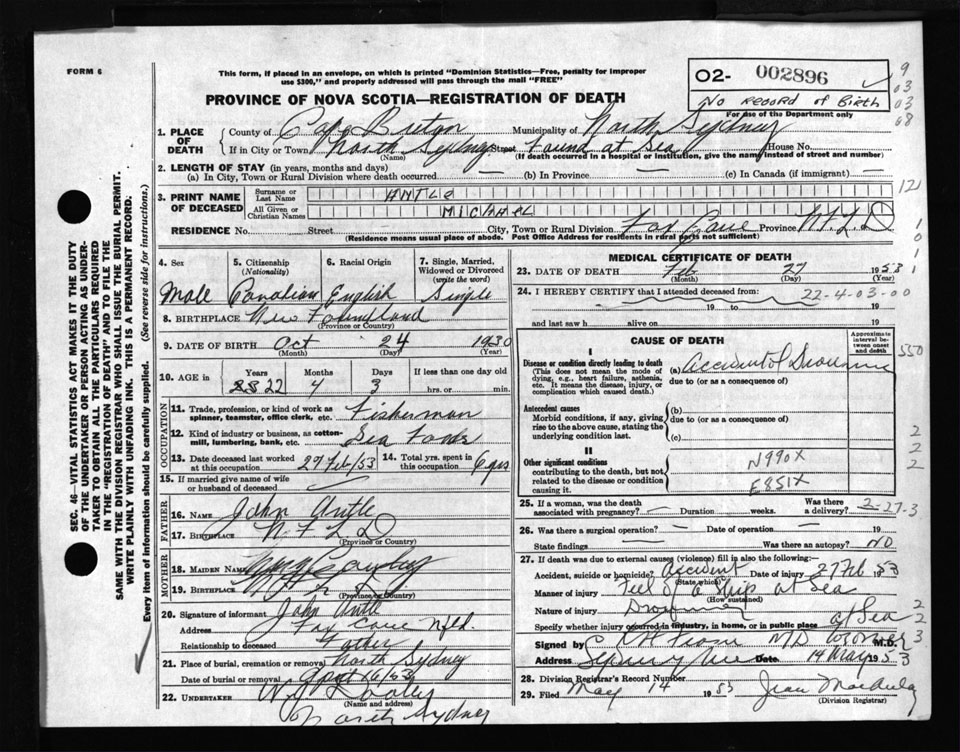 FORM 6
This form, if placed in an envelope, on which is printed "Dominion Statistics—Free, penalty for improper
use $300," and properly addressed will pass through the mail "FREE"
PROVINCE OF NOVA SCOTIA—REGISTRATION OF DEATH
02- 002896
No record of Birth
For use of the Department only
9
03
03
68
SEC. 46—VITAL STATISTICS ACT MAKES IT THE DUTY
OF THE UNDERTAKER OR PERSON ACTING AS UNDER-
TAKER TO OBTAIN ALL THE PARTICULARS REQUIRED
IN THE "REGISTRATION OF DEATH" AND TO FILE THE
SAME WITH THE DIVISION REGISTRAR WHO SHALL ISSUE THE BURIAL PERMIT.
WRITE PLAINLY WITH UNFADING INK. THIS IS A PERMANENT RECORD.
Every item of information should be carefully supplied. (See reverse side for instructions.)
1. PLACE OF DEATH
County of Cape Breton Municipality of North Sydney
If in City or Town North Sydney Street Found at Sea House No.
(Name) (If death occurred in a hospital or institution, give the name instead of street and number)
2. LENGTH OF STAY (in years, months and days)
(a) In City, Town or Rural Division where death occurred — (b) In Province — (c) In Canada (if immigrant) —
3. PRINT NAME OF DECEASED
Surname or Last Name ANTLE
All Given or Christian Names MICHAEL
121
RESIDENCE No. Street City, Town or Rural Division Fox Cove Province NFLD
(Residence means usual place of abode. Post Office Address for residents in rural parts not sufficient)
4. Sex Male
5. Citizenship (Nationality) Canadian
6. Racial Origin English
7. Single, Married, Widowed or Divorced (write the word) Single
8. BIRTHPLACE New Foundland
(Province or Country)
9. DATE OF BIRTH Oct 24 1930
(Month) (Day) (Year)
10. AGE in Years 22 Months 4 Days 3 If less than one day old hrs. or min.
OCCUPATION
11. Trade, profession, or kind of work as spinner, teamster, office clerk, etc. Fisherman
12. Kind of industry or business, as cotton-mill, lumbering, bank, etc. Sea Foods
13. Date deceased last worked at this occupation 27 Feb/53 14. Total yrs. spent in this occupation 6 yrs
15. If married give name of wife or husband of deceased
FATHER
16. NAME John Antle
17. BIRTHPLACE NFLD
(Province or Country)
MOTHER
18. MAIDEN NAME
(Province or Country)
20. Signature of informant John Antle
Address Fox Cove Nfld.
Relationship to deceased Father
21. Place of burial, cremation or removal North Sydney
Date of burial or removal April 16/53
22. UNDERTAKER W J Dooley
(Name and address)
North Sydney
MEDICAL CERTIFICATE OF DEATH
23. DATE OF DEATH Feb 27 1953
(Month) (Day) (Year)
24. I HEREBY CERTIFY that I attended deceased from:
22-4-03-00
19 to 19
and last saw h alive on 19
CAUSE OF DEATH
Approximate interval between onset and death
550
I
Disease or condition directly leading to death
(This does not mean the mode of dying, e.g., heart failure, asthenia, etc. It means the disease, injury, or complication which caused death.)
(a) Accidental Drowning
due to (or as a consequence of)
Antecedent causes
Morbid conditions, if any, giving rise to the above cause, stating the underlying condition last.
(b)
due to (or as a consequence of)
(c)
II
Other significant conditions contributing to the death, but not related to the disease or condition causing it.
N990X
E851X
2
2
2
25. If a woman, was the death associated with pregnancy? — Duration weeks. Was there a delivery?
2-27-3
26. Was there a surgical operation? — Date of operation — 19
State findings — Was there an autopsy? NO
27. If death was due to external causes (violence) fill in also the following:
Accident, suicide or homicide? Accident Date of injury 27 Feb 1953
(State which)
Manner of injury Fell off a ship at Sea
(How sustained)
Nature of injury Drowning
Specify whether injury occurred in industry, in home, or in public place at Sea
Signed by MD Coroner M.D.
Address Sydney Mines Date 14 May 1953
28. Division Registrar's Record Number
29. Filed May 14 1953 Jean
(Division Registrar)